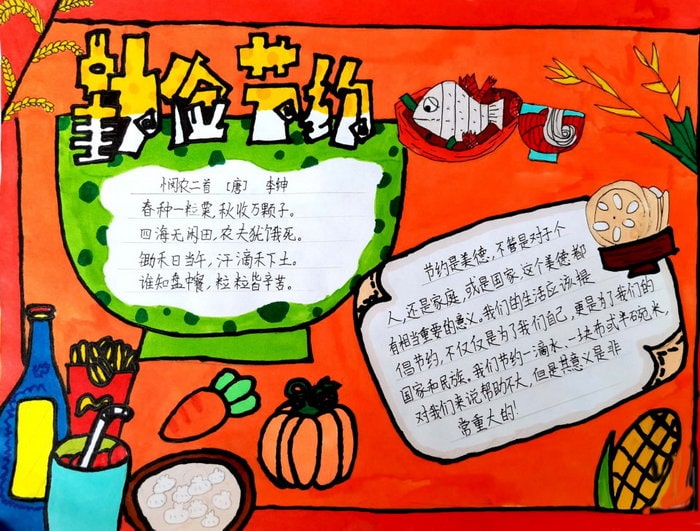 勤俭节约
悯农二首 [唐] 李绅
春种一粒粟,秋收万颗子。
四海无闲田,农夫犹饿死。
锄禾日当午,汗滴禾下土。
谁知盘中餐,粒粒皆辛苦。
节约是美德,不管是对于个
人,还是家庭,或是国家这个美德都
有相当重要的意义,我们的生活应该提
倡节约,不仅仅是为了我们自己,更是为了我们的
国家和民族。我们节约一滴水、一块布或半碗米,
对我们来说帮助不大,但是其意义是非
常重大的!